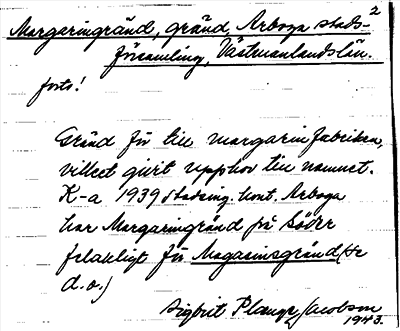 2
Margaringränd, gränd, Arboga stads-
församling, Västmanlands län.
forts!
Gränd för till margarinfabriken,
vilket givit upphov till namnet.
K-a 1939 Stadsing. kont. Arboga
har Margaringränd på Söder
felaktigt för Magasinsgränd (se
d.o.)
Sigbrit Plange Jacobson
1943.